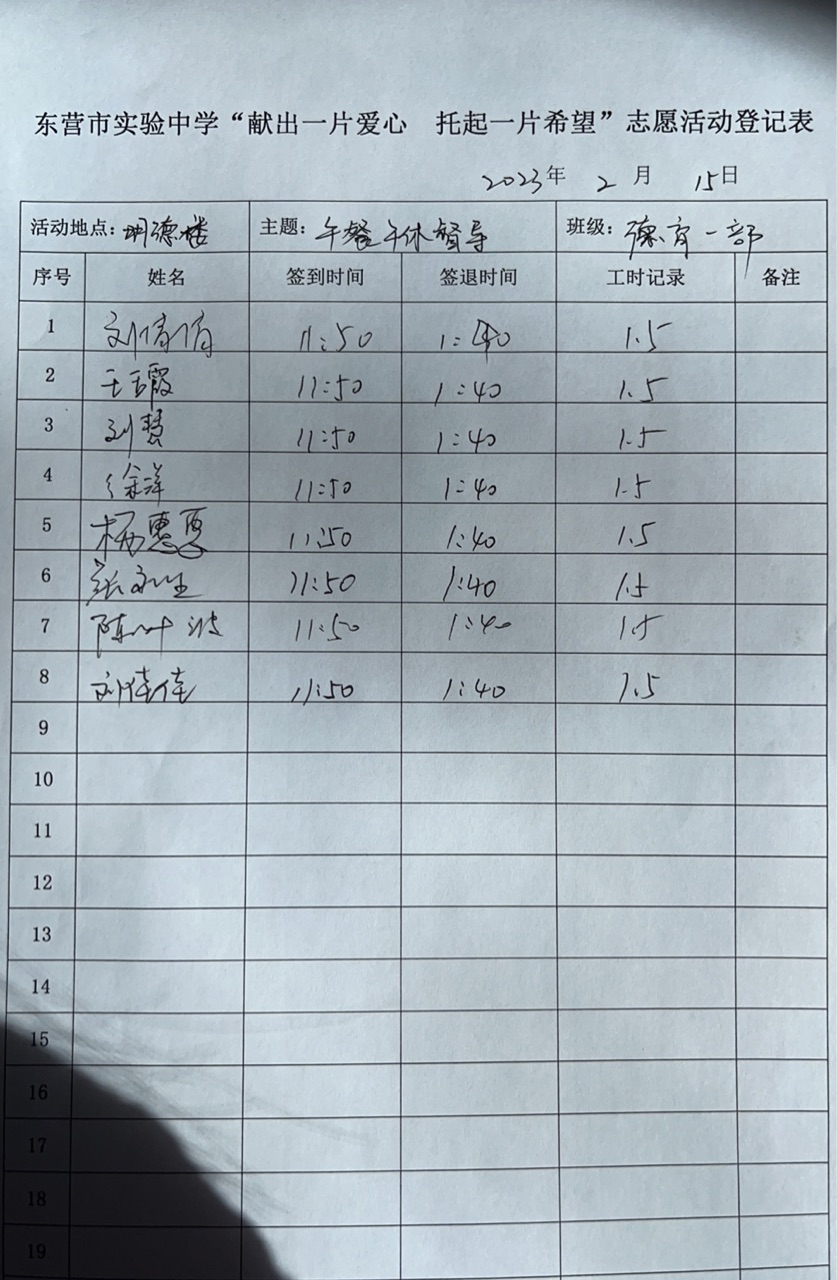 东营市实验中学“献出一片爱心 托起一片希望”志愿活动登记表
2023年 2 月 15日
活动地点: 明德楼 主题: 午餐午休督导 班级: 德育一部
序号 姓名 签到时间 签退时间 工时记录 备注
1 刘倩倩 11:50 1:40 1.5
2 王玉霞 11:50 1:40 1.5
3 刘慧 11:50 1:40 1.5
4 徐洋 11:50 1:40 1.5
5 杨惠惠 11:50 1:40 1.5
6 张 11:50 1:40 1.5
7 陈叶波 11:50 1:40 1.5
8 刘佳佳 11:50 1:40 1.5
9
10
11
12
13
14
15
16
17
18
19